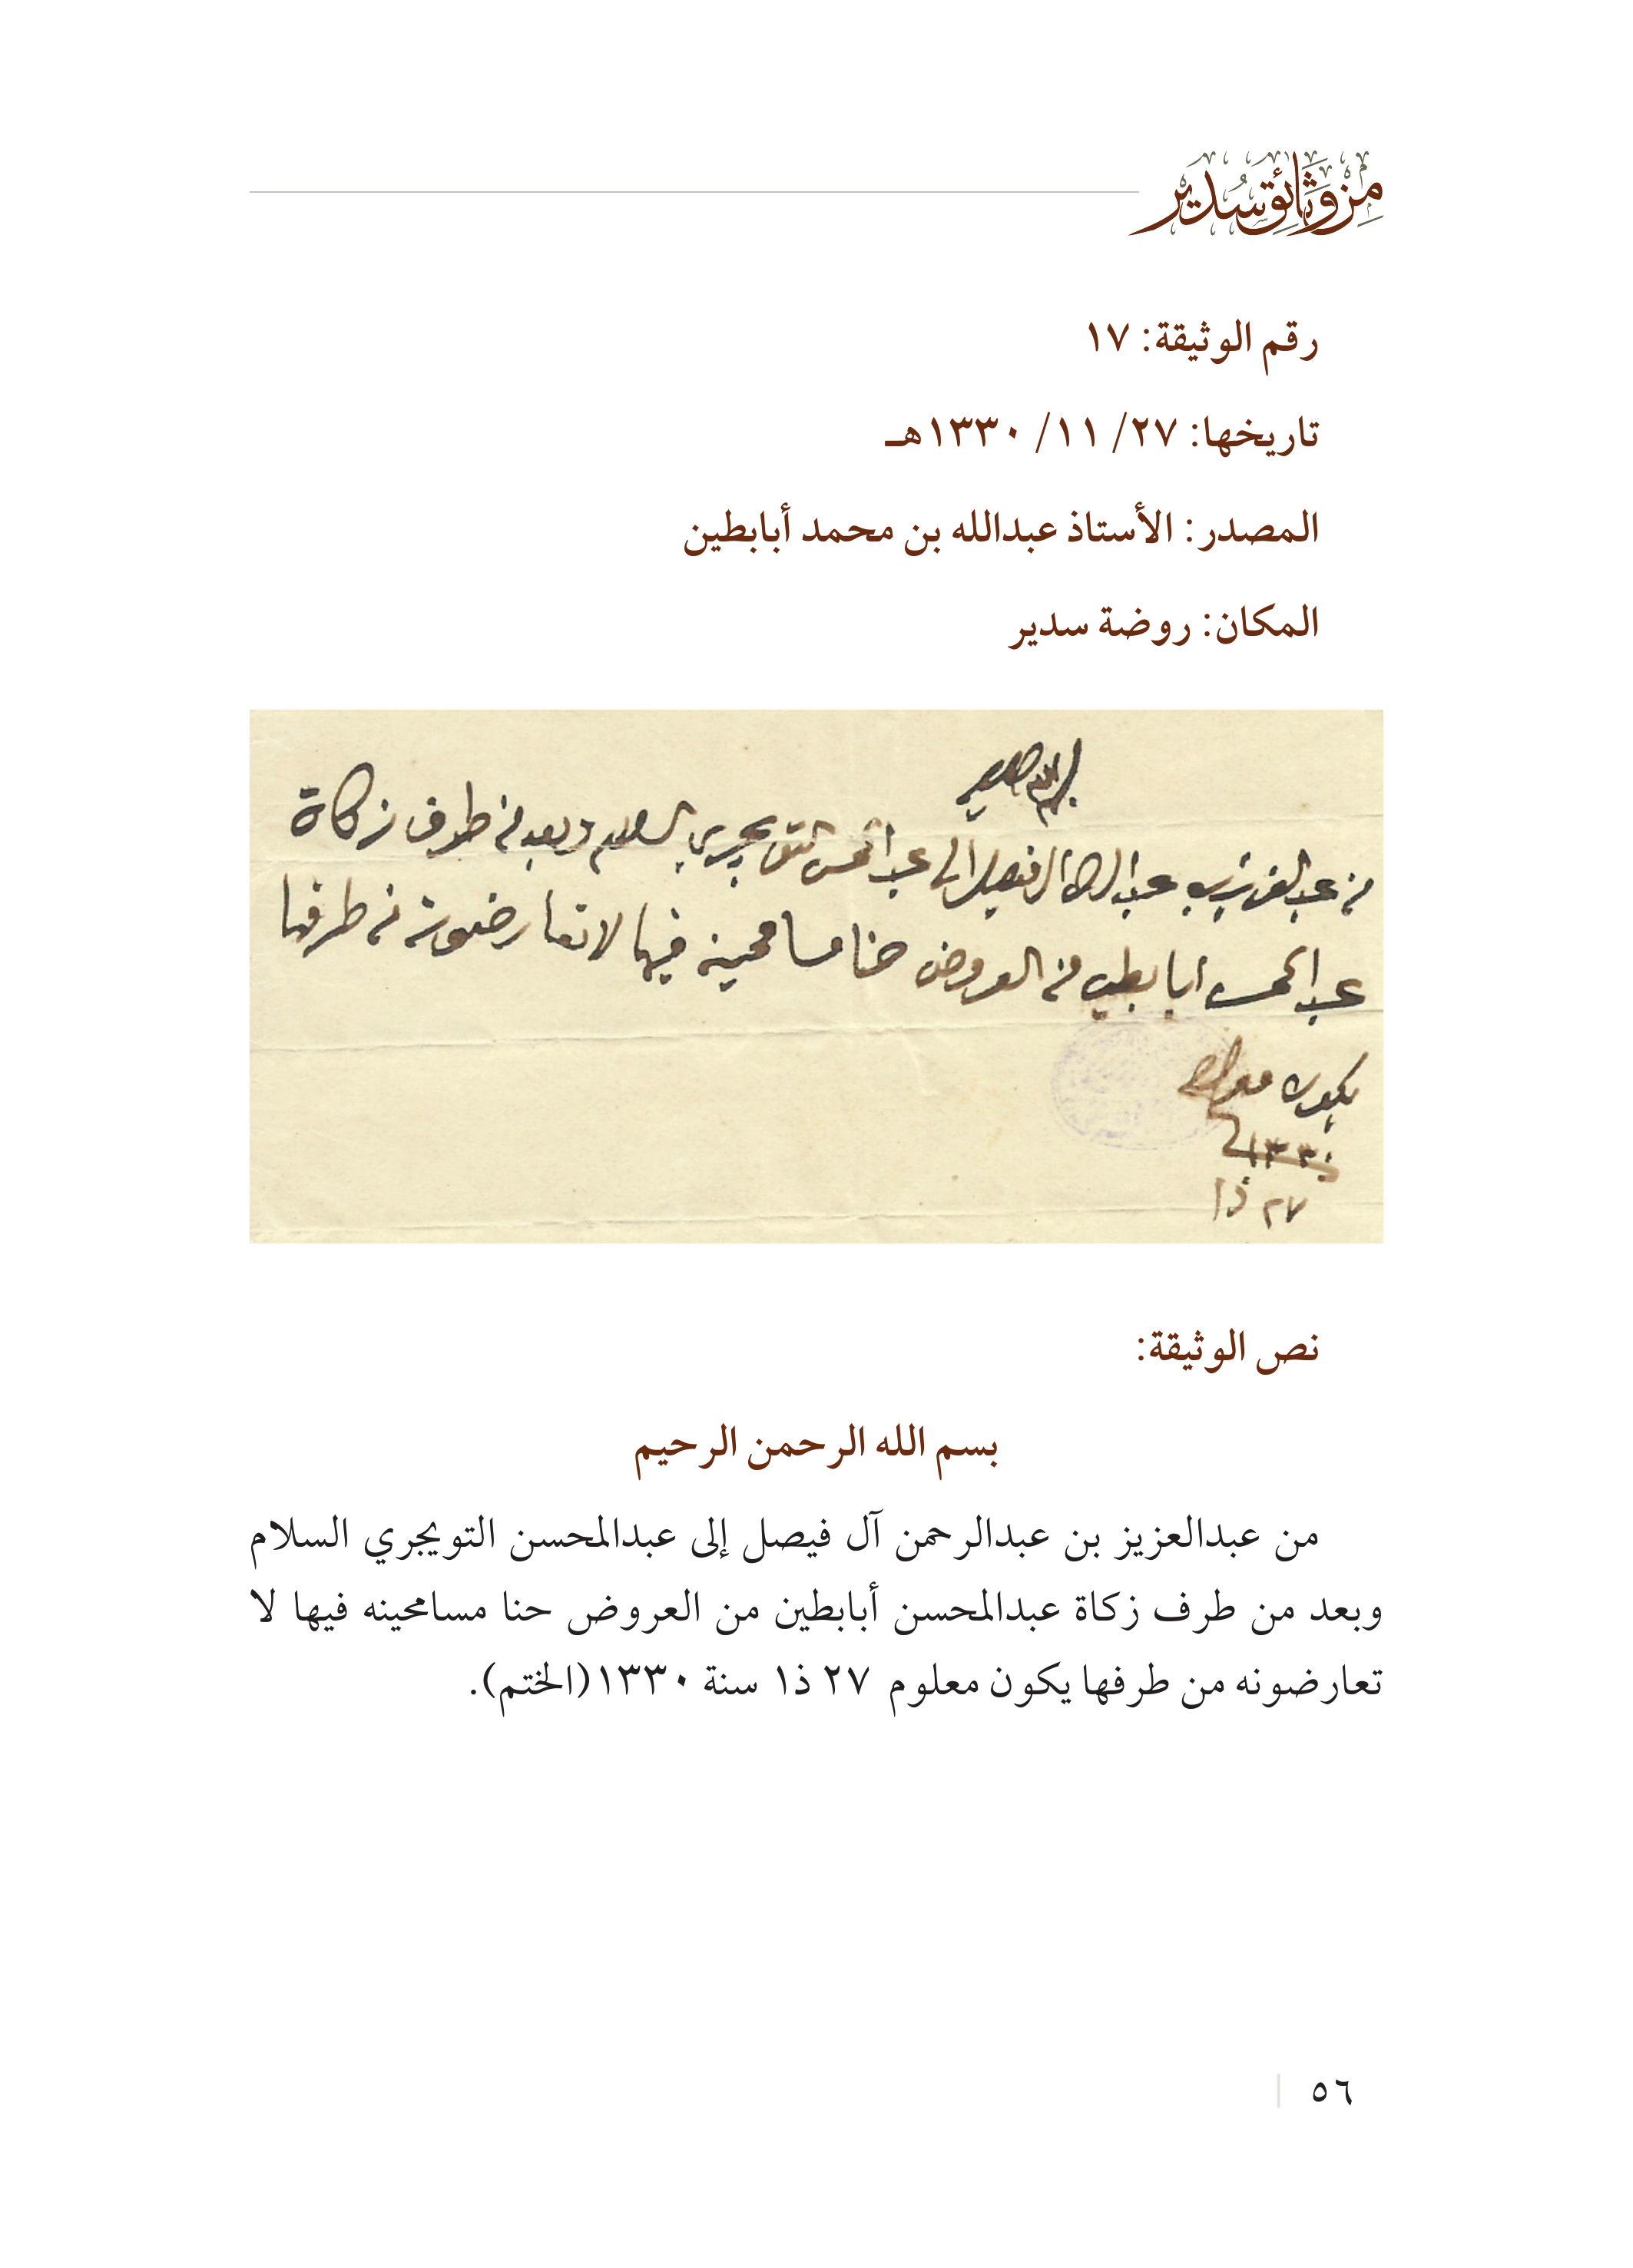 من وثائق سدير
رقم الوثيقة: ١٧
تاريخها: ٢٧/ ١١/ ١٣٣٠هـ
المصدر: الأستاذ عبدالله بن محمد أبابطين
المكان: روضة سدير
من عبدالعزيز بن عبدالرحمن ال فيصل الى عبدالمحسن التويجري السلام وبعد من طرف زكاة
عبدالمحسن ابابطين من العروض حنا مسامحينه فيها لا تعارضونه من طرفها
يكون معلوم
١٣٣٠
٢٧ ذا
نص الوثيقة:
بسم الله الرحمن الرحيم
من عبدالعزيز بن عبدالرحمن آل فيصل إلى عبدالمحسن التويجري السلام
وبعد من طرف زكاة عبدالمحسن أبابطين من العروض حنا مسامحينه فيها لا
تعارضونه من طرفها يكون معلوم ٢٧ ذا سنة ١٣٣٠(الختم).
٥٦